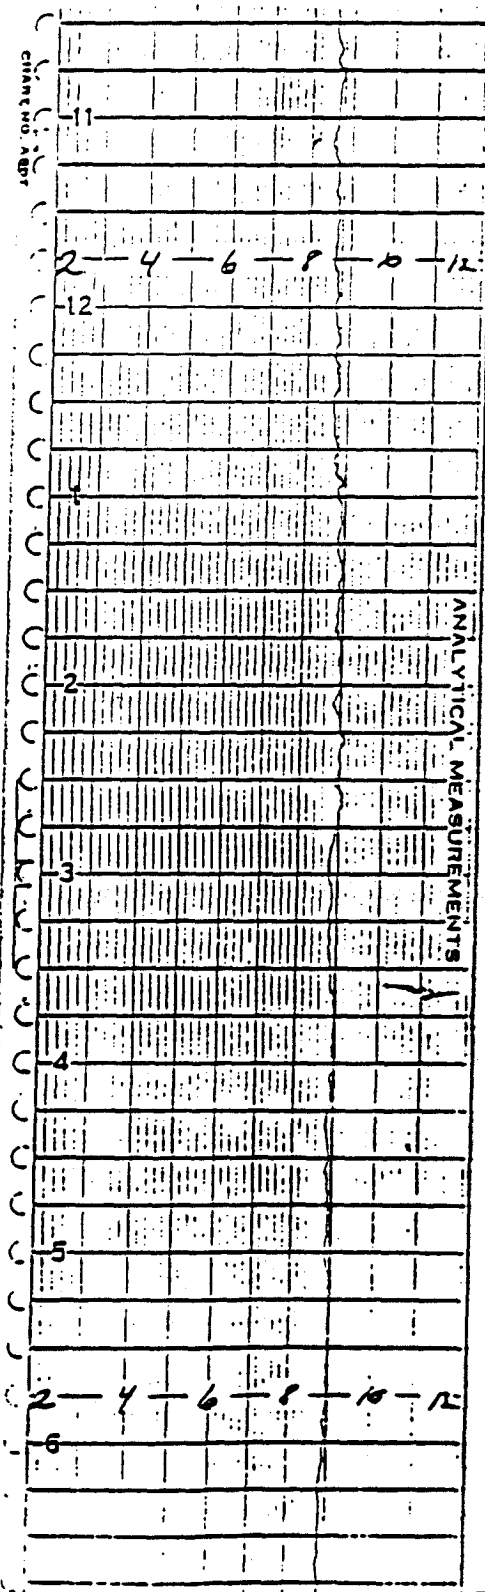 CHART NO. ABDT
11
2 — 4 — 6 — 8 — 10 — 12
12
1
2
ANALYTICAL MEASUREMENTS
3
4
5
2 — 4 — 6 — 8 — 10 — 12
6